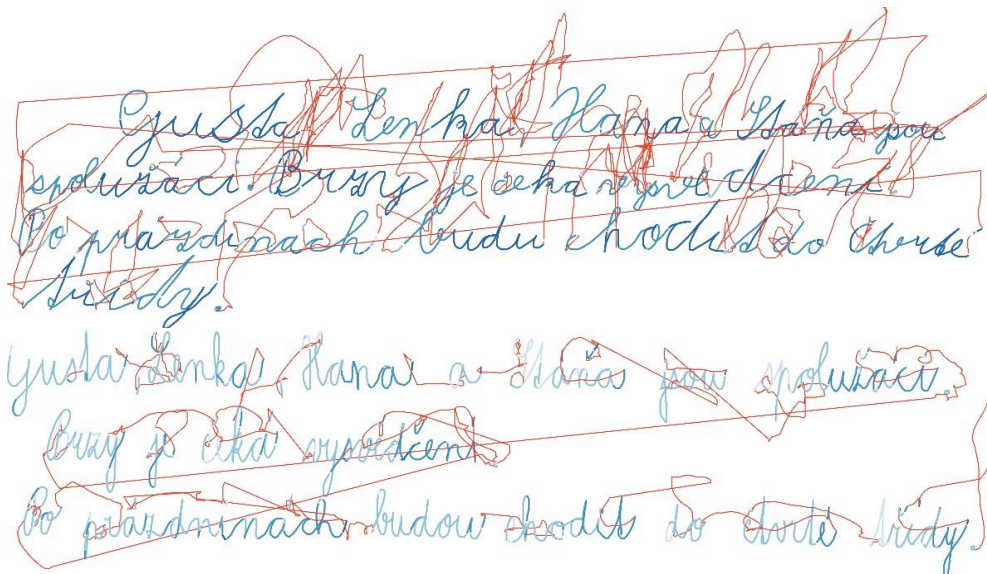 Gusta, Lenka, Hana a Stáňa jsou
spolužáci. Brzy je čeká vysvědčení.
Po prázdinach budu chodit do čtvrté
třídy.
Gusta Lenka Hana a Stáňa jsou spolužáci.
Brzy je čeká vysvědčení.
Po prázdninách budou chodit do čtvrté třídy.